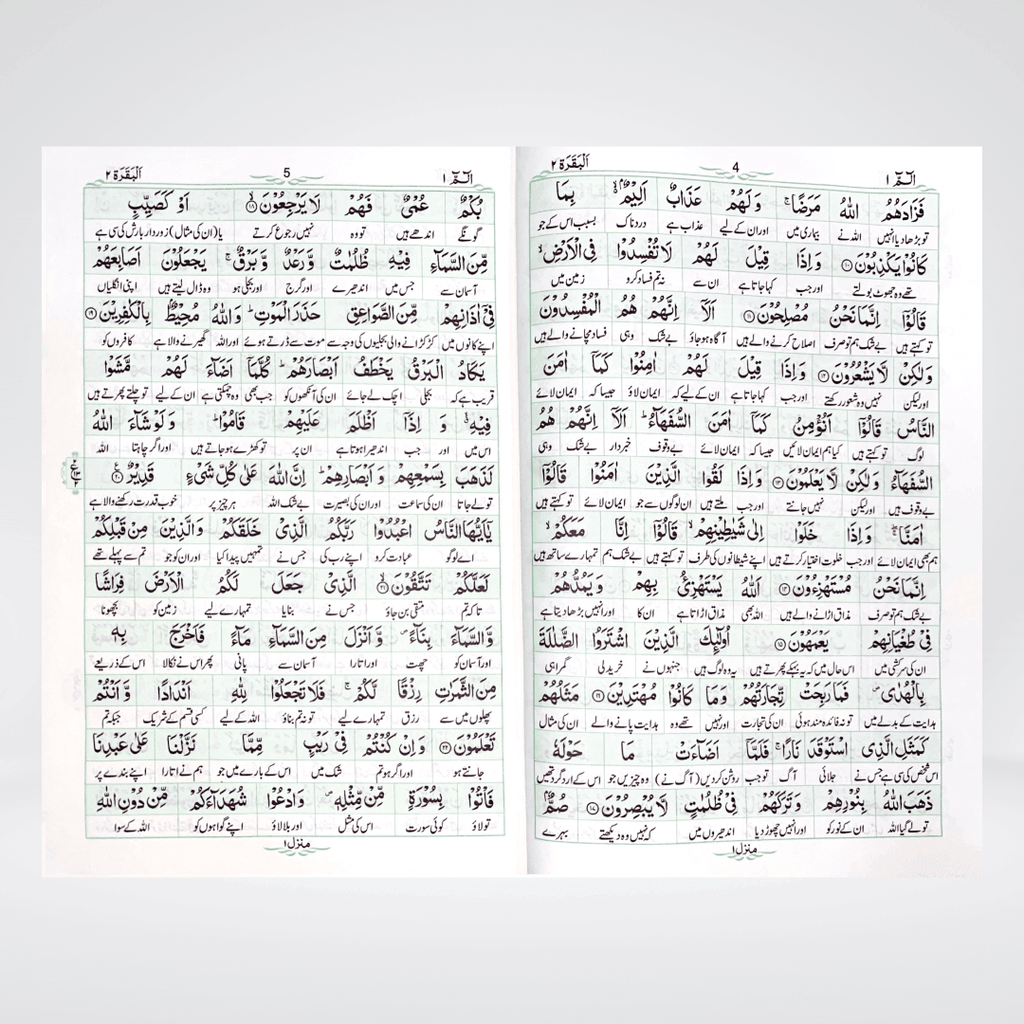 الٓمّٓ ١
4
اَلْبَقَرَة ٢
فَزَادَهُمُ اللّٰهُ مَرَضًا ۚ وَ لَهُمْ عَذَابٌ اَلِيْمٌۢ ۙ بِمَا
تو بڑھا دیا انہیں اللہ نے بیماری میں اور ان کے لیے عذاب ہے دردناک بسبب اس کے جو
كَانُوْا يَكْذِبُوْنَ ﴿١٠﴾ وَ اِذَا قِيْلَ لَهُمْ لَا تُفْسِدُوْا فِي الْاَرْضِ ۙ
تھے وہ جھوٹ بولتے اور جب کہا جاتا ہے ان سے نہ تم فساد کرو زمین میں
قَالُوْٓا اِنَّمَا نَحْنُ مُصْلِحُوْنَ ﴿١١﴾ اَلَآ اِنَّهُمْ هُمُ الْمُفْسِدُوْنَ
تو کہتے ہیں بے شک ہم تو صرف اصلاح کرنے والے ہیں آگاہ ہو جاؤ بے شک وہی فساد مچانے والے ہیں
وَ لٰكِنْ لَّا يَشْعُرُوْنَ ﴿١٢﴾ وَ اِذَا قِيْلَ لَهُمْ اٰمِنُوْا كَمَآ اٰمَنَ
اور لیکن نہیں وہ شعور رکھتے اور جب کہا جاتا ہے ان کے لیے کہ ایمان لاؤ جیسا کہ ایمان لائے
النَّاسُ قَالُوْٓا اَنُؤْمِنُ كَمَآ اٰمَنَ السُّفَهَآءُ ؕ اَلَآ اِنَّهُمْ هُمُ
لوگ تو کہتے ہیں کیا ہم ایمان لائیں جیسا کہ ایمان لائے بے وقوف خبردار بے شک وہی
السُّفَهَآءُ وَ لٰكِنْ لَّا يَعْلَمُوْنَ ﴿١٣﴾ وَ اِذَا لَقُوا الَّذِيْنَ اٰمَنُوْا قَالُوْٓا
بے وقوف ہیں اور لیکن نہیں جانتے اور جب ملتے ہیں ان لوگوں سے جو ایمان لائے تو کہتے ہیں
اٰمَنَّا ۚ وَ اِذَا خَلَوْا اِلٰى شَيٰطِيْنِهِمْ ۙ قَالُوْٓا اِنَّا مَعَكُمْ ۙ
ہم بھی ایمان لائے اور جب خلوت اختیار کرتے ہیں اپنے شیطانوں کی طرف تو کہتے ہیں بے شک ہم تمہارے ساتھ ہیں
اِنَّمَا نَحْنُ مُسْتَهْزِءُوْنَ ﴿١٤﴾ اَللّٰهُ يَسْتَهْزِئُ بِهِمْ وَ يَمُدُّهُمْ
بے شک ہم تو صرف مذاق اڑانے والے ہیں اللہ بھی مذاق اڑاتا ہے ان کا اور انہیں بڑھا دیتا ہے
فِيْ طُغْيَانِهِمْ يَعْمَهُوْنَ ﴿١٥﴾ اُولٰٓئِكَ الَّذِيْنَ اشْتَرَوُا الضَّلٰلَةَ
ان کی سرکشی میں اس حال میں کہ یہ بہکے پھرتے ہیں یہ وہ لوگ ہیں جنہوں نے خرید لی گمراہی
بِالْهُدٰى ۪ فَمَا رَبِحَتْ تِّجَارَتُهُمْ وَ مَا كَانُوْا مُهْتَدِيْنَ ﴿١٦﴾ مَثَلُهُمْ
ہدایت کے بدلے میں تو نہ فائدہ مند ہوئی ان کی تجارت اور نہیں تھے وہ ہدایت پانے والے ان کی مثال
كَمَثَلِ الَّذِي اسْتَوْقَدَ نَارًا ۚ فَلَمَّآ اَضَآءَتْ مَا حَوْلَهٗ
اس شخص کی سی ہے جس نے جلائی آگ تو جب روشن کر دیں (آگ نے) وہ چیزیں جو اس کے ارد گرد تھیں
ذَهَبَ اللّٰهُ بِنُوْرِهِمْ وَ تَرَكَهُمْ فِيْ ظُلُمٰتٍ لَّا يُبْصِرُوْنَ ﴿١٧﴾ صُمٌّۢ
تو لے گیا اللہ ان کے نور کو اور انہیں چھوڑ دیا اندھیروں میں کہ نہیں وہ دیکھتے بہرے
منزل ١
الٓمّٓ ١
5
اَلْبَقَرَة ٢
بُكْمٌ عُمْيٌ فَهُمْ لَا يَرْجِعُوْنَ ﴿١٨﴾ ۙ اَوْ كَصَيِّبٍ
گونگے اندھے ہیں تو وہ نہیں رجوع کرتے یا (ان کی مثال) زور دار بارش کی سی ہے
مِّنَ السَّمَآءِ فِيْهِ ظُلُمٰتٌ وَّ رَعْدٌ وَّ بَرْقٌ ۚ يَجْعَلُوْنَ اَصَابِعَهُمْ
آسمان سے جس میں اندھیرے اور گرج اور بجلی ہو وہ ڈال لیتے ہیں اپنی انگلیاں
فِيْٓ اٰذَانِهِمْ مِّنَ الصَّوَاعِقِ حَذَرَ الْمَوْتِ ؕ وَ اللّٰهُ مُحِيْطٌۢ بِالْكٰفِرِيْنَ ﴿١٩﴾
اپنے کانوں میں کڑکڑانے والی بجلیوں کی وجہ سے موت سے ڈرتے ہوئے اور اللہ گھیرنے والا ہے کافروں کو
يَكَادُ الْبَرْقُ يَخْطَفُ اَبْصَارَهُمْ ؕ كُلَّمَآ اَضَآءَ لَهُمْ مَّشَوْا
قریب ہے کہ بجلی اچک لے جائے ان کی آنکھوں کو جب بھی وہ چمکتی ہے ان کے لیے تو چلتے پھرتے ہیں
فِيْهِ ۙ وَ اِذَآ اَظْلَمَ عَلَيْهِمْ قَامُوْا ؕ وَ لَوْ شَآءَ اللّٰهُ
اس میں اور جب اندھیرا ہوتا ہے ان پر تو کھڑے ہو جاتے ہیں اور اگر چاہتا اللہ
لَذَهَبَ بِسَمْعِهِمْ وَ اَبْصَارِهِمْ ؕ اِنَّ اللّٰهَ عَلٰى كُلِّ شَيْءٍ قَدِيْرٌ ﴿٢٠﴾
تو لے جاتا ان کی سماعت اور ان کی بصیرت بے شک اللہ ہر چیز پر خوب قدرت رکھنے والا ہے
يٰٓاَيُّهَا النَّاسُ اعْبُدُوْا رَبَّكُمُ الَّذِيْ خَلَقَكُمْ وَ الَّذِيْنَ مِنْ قَبْلِكُمْ
اے لوگو عبادت کرو اپنے رب کی جس نے تمہیں پیدا کیا اور ان کو جو تم سے پہلے تھے
لَعَلَّكُمْ تَتَّقُوْنَ ﴿٢١﴾ ۙ الَّذِيْ جَعَلَ لَكُمُ الْاَرْضَ فِرَاشًا
تا کہ تم متقی بن جاؤ جس نے بنایا تمہارے لیے زمین کو بچھونا
وَّ السَّمَآءَ بِنَآءً ۪ وَّ اَنْزَلَ مِنَ السَّمَآءِ مَآءً فَاَخْرَجَ بِهٖ
اور آسمان کو چھت اور اتارا آسمان سے پانی پھر اس نے نکالا اس کے ذریعے
مِنَ الثَّمَرٰتِ رِزْقًا لَّكُمْ ۚ فَلَا تَجْعَلُوْا لِلّٰهِ اَنْدَادًا وَّ اَنْتُمْ
پھلوں میں سے رزق تمہارے لیے تو نہ تم بناؤ اللہ کے لیے کسی قسم کے شریک جبکہ تم
تَعْلَمُوْنَ ﴿٢٢﴾ وَ اِنْ كُنْتُمْ فِيْ رَيْبٍ مِّمَّا نَزَّلْنَا عَلٰى عَبْدِنَا
جانتے ہو اور اگر ہو تم شک میں اس کے بارے میں جو ہم نے اتارا اپنے بندے پر
فَاْتُوْا بِسُوْرَةٍ مِّنْ مِّثْلِهٖ ۪ وَ ادْعُوْا شُهَدَآءَكُمْ مِّنْ دُوْنِ اللّٰهِ
تو لاؤ کوئی سورت اس کی مثل اور بلا لاؤ اپنے گواہوں کو اللہ کے سوا
منزل ١